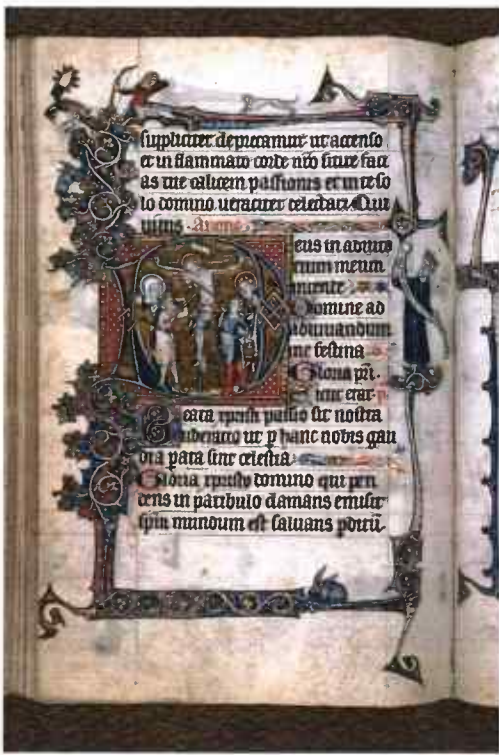 suppliciter deprecamur ut accenso
et in flammato corde nro sitire faci
as tue calicem passionis et in te so
lo domino veraciter delectari. Qui
vivis.
eus in adiuto
rium meum
intende
omine ad
adiuvandum
me festina
Gloria pri.
sicut erat.
eata xpristi passio sit nostra
liberatio ut p hanc nobis gau
dia pata sint celestia
Gloria xpristo domino qui pen
dens in patibulo clamans emisit
spm mundum est salvans pditu.